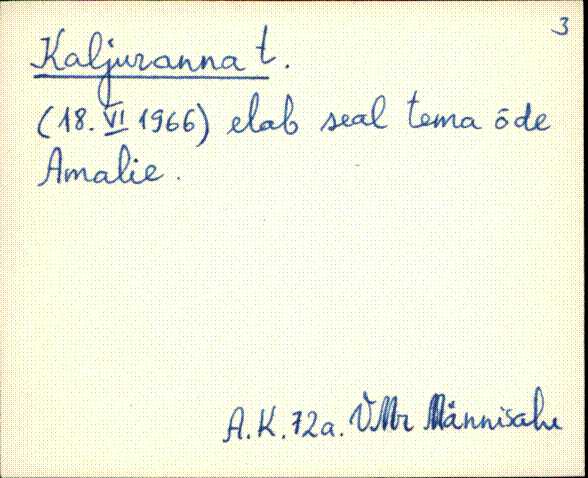 3
Kaljuranna t.
(18. VI 1966) elab seal tema õde
Amalie.
A.K. 72a. VMr Männisalu